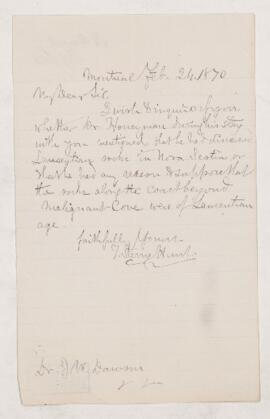 Montreal Feb. 24. 1870
My Dear Sir.
I wish to inquire of you
whether Dr Honeyman during his stay
with you mentioned that he had discovered
Laurentian rocks in Nova Scotia or
that he had any reason to suppose that
the rocks along the coast beyond
Malignant Cove were of Laurentian
age.
faithfully Yours
T. Sterry Hunt
Dr. J. W. Dawson